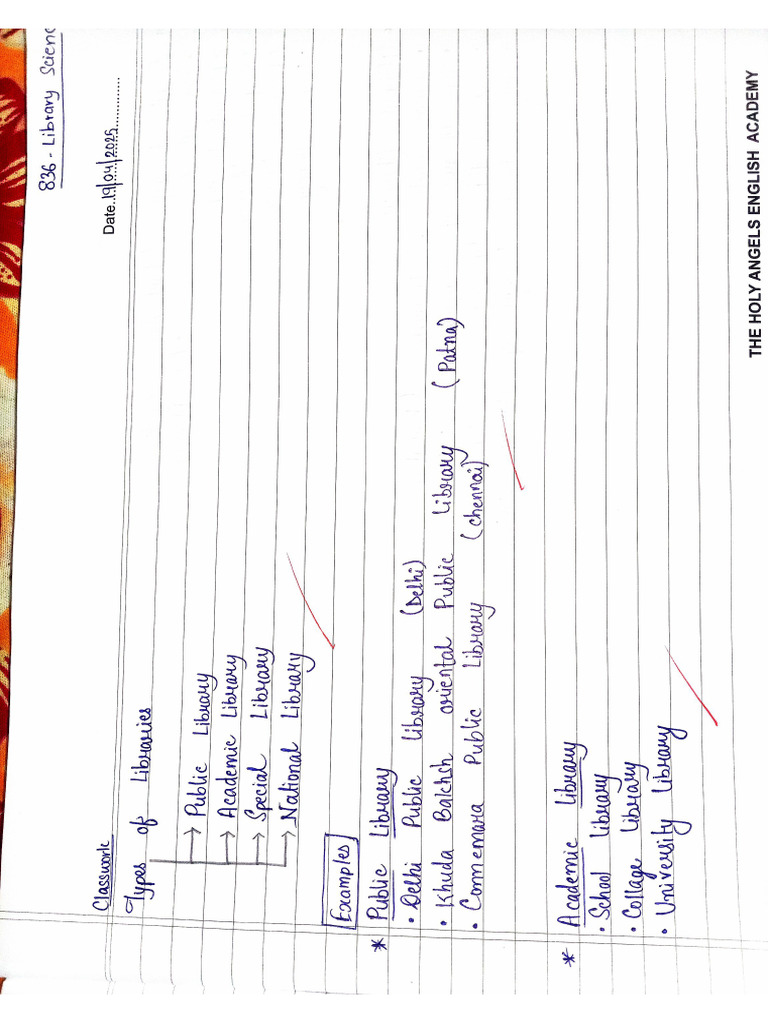 836 - Library Scienc
Date..19/04/2025..............
Classwork
Types of Libraries
→ Public Library
→ Academic Library
→ Special Library
→ National Library
Examples
* Public Library
• Delhi Public Library (Delhi)
• Khuda Bakhch oriental Public Library (Patna)
• Connemara Public Library (Chennai)
* Academic Library
• School Library
• Collage Library
• University Library
THE HOLY ANGELS ENGLISH ACADEMY